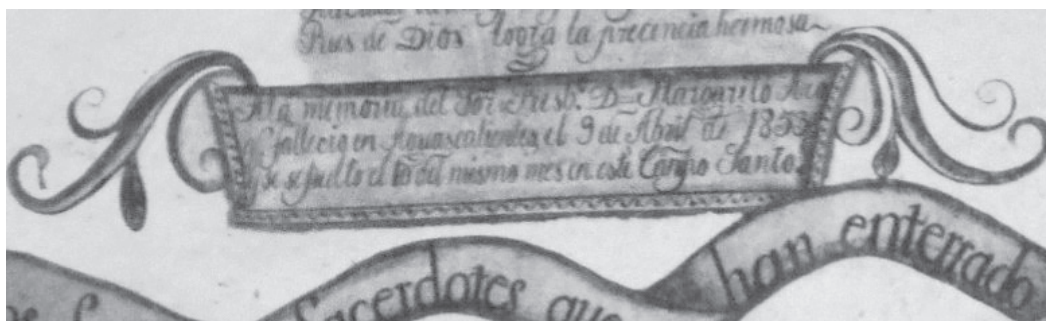 Pues de Dios logra la precencia hermosa
A la memoria del Sor. Presb. D. Margarito
fallecio en Aguascalientes el 9 de Abril de 1853
y se sepulto el del mismo mes en este Campo Santo
Sacerdotes que han enterrado